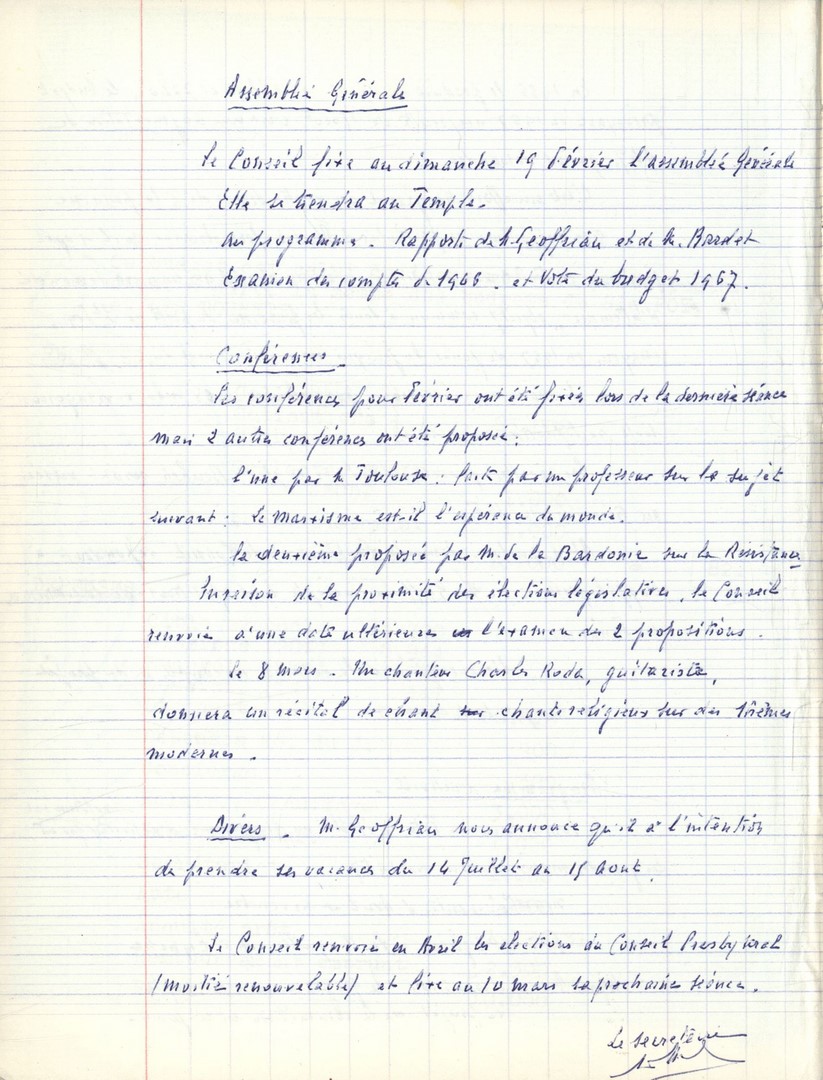 Assemblée Générale
Le Conseil fixe au dimanche 19 Février l'assemblée Générale
Elle se tiendra au Temple.
Au programme. Rapports de M. Geoffriau et de M. Bardet
Examen des comptes de 1966. et Vote du budget 1967.
Conférences.
Les conférences pour Février ont été fixées lors de la dernière séance
mais 2 autres conférences ont été proposées :
l'une par M Toulouse : faite par un professeur sur le sujet
suivant : Le Marxisme est-il l'espérance du monde.
la deuxième proposée par M. de la Bardonie sur la Résistance
En raison de la proximité des élections législatives, le Conseil
renvoie à une date ultérieure l'examen des 2 propositions.
Le 8 mars. Un chanteur Charles Roda, guitariste,
donnera un récital de chant chants religieux sur des thèmes
modernes.
Divers. M. Geoffriau nous annonce qu'il a l'intention
de prendre ses vacances du 14 Juillet au 15 Aout.
Le Conseil renvoie en Avril les élections au Conseil Presbytéral
(moitié renouvelable) et fixe au 10 mars sa prochaine séance.
Le secrétaire